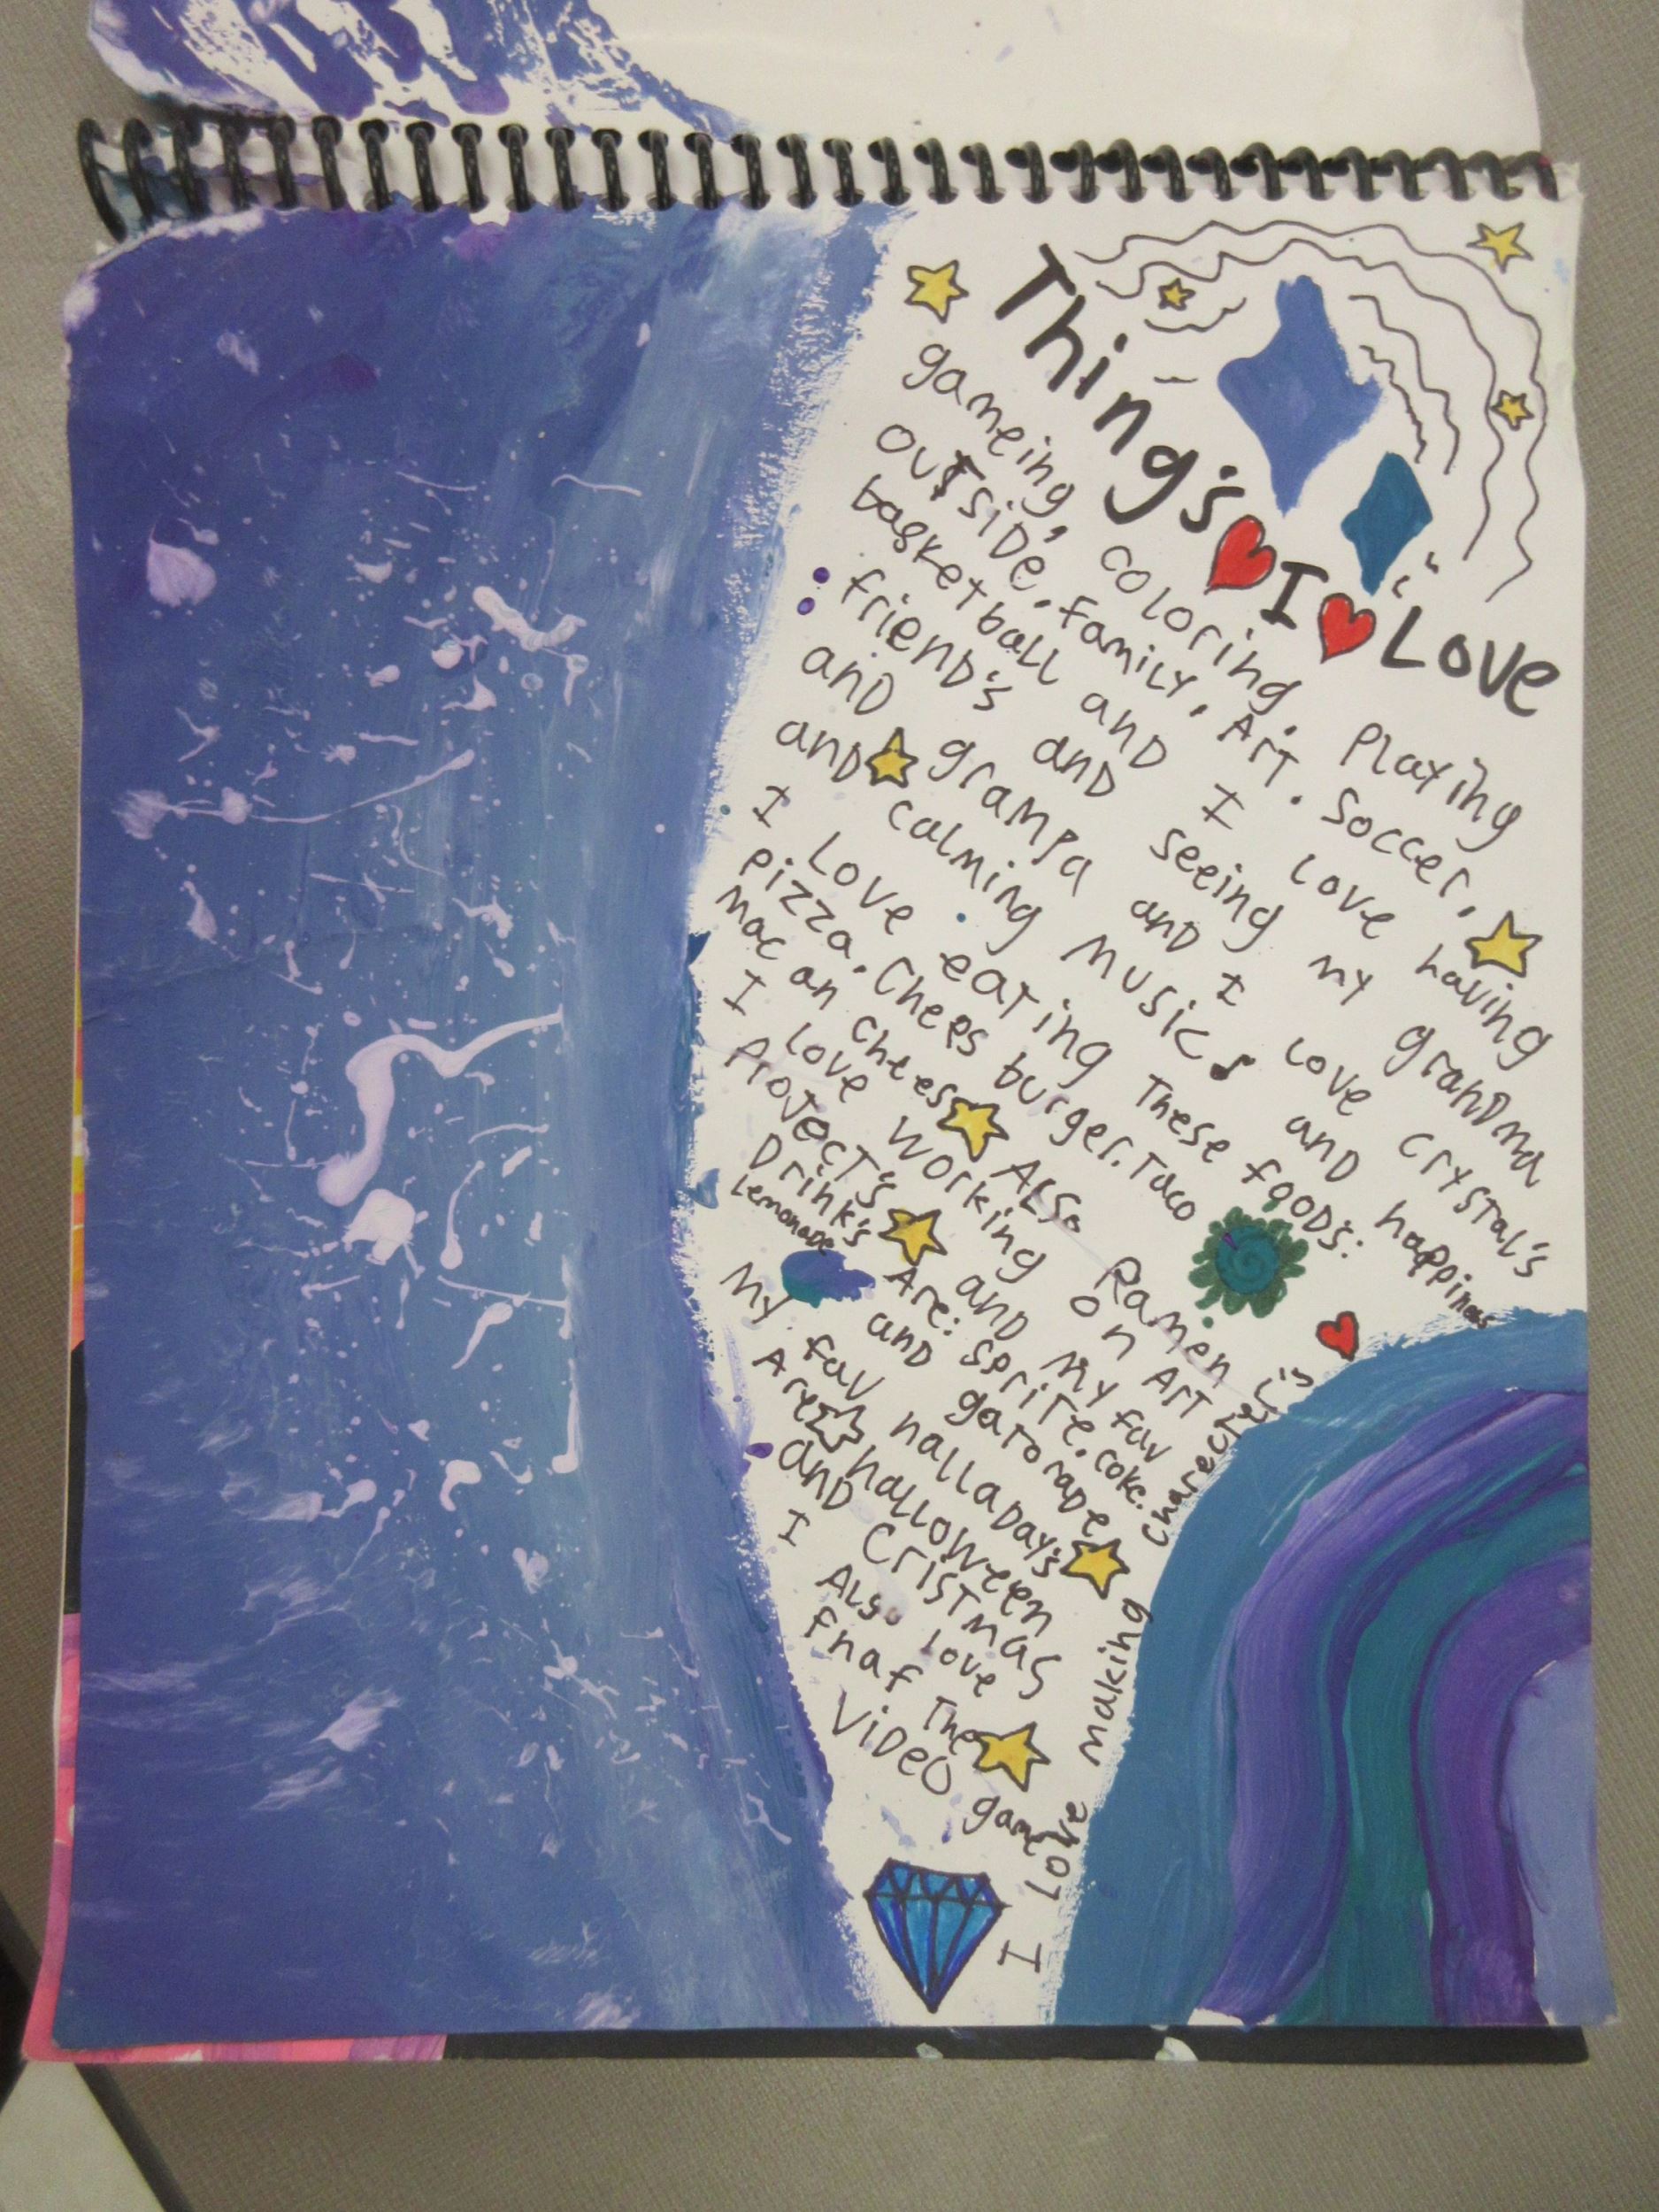 Thing's I Love
gameing, coloring. Playing
outside. family. Art. Soccer.
basketball and I love having
friend's and seeing my grandma
and grampa and I love crystal's
and calming music and happiness
I love eating These foods:
pizza. Chees burger. Taco
Mac an chees Also Ramen
I love working on Art
Project's and My fav
Drink's Are: Sprite. coke.
Lemonade and gatorade
My fav halladay's
Are halloween
and Cristmas
I Also love
fnaf The
Video game
I Love making charecters